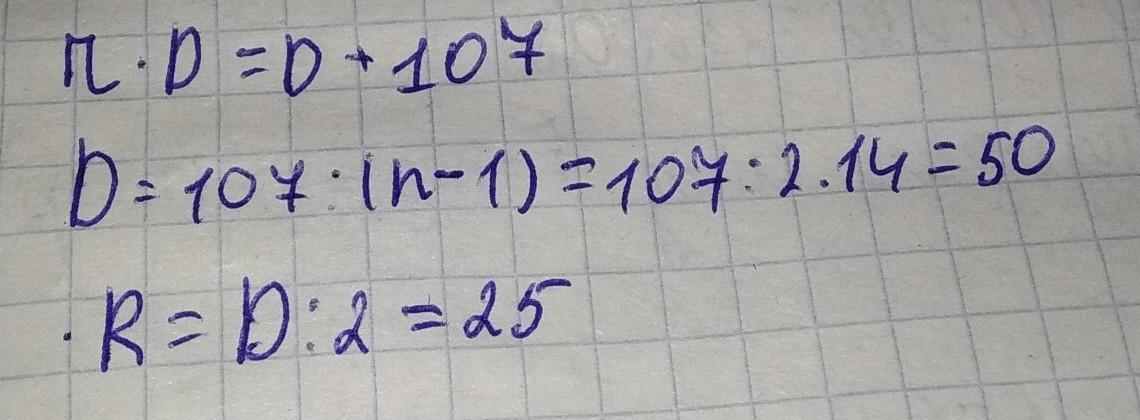 π · D = D + 107
D = 107 : (π - 1) = 107 : 2.14 = 50
R = D : 2 = 25